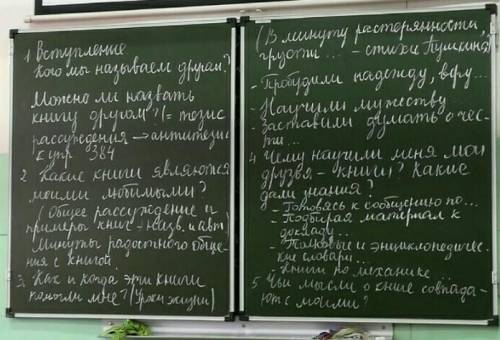 1 Вступление
Кого мы называем другом?
Можно ли назвать
книгу другом? (= тезис
рассуждения → антитезис
к упр 384
2. Какие книги являются
моими любимыми?
(Общее рассуждение и
примеры книг - назв. и авт)
Минуты радостного обще-
ния с книгой
3. Как и когда эти книги
помогли мне? (Уроки жизни)
(В минуту растерянности,
грусти... - стихи Пушкина)
- Пробудили надежду, веру...
- Научили мужеству
- Заставили думать о чес-
ти...
4 Чему научили меня мои
друзья - книги? Какие
дали знания?
- Готовясь к сообщению по...
- Подбирая материал к
докладу...
- Толковые и энциклопедичес-
кие словари...
- Книги по механике
5 Чьи мысли о книге совпада-
ют с моими?